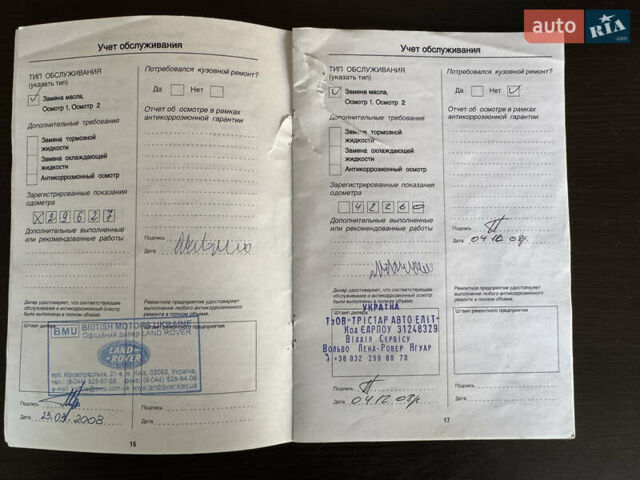 auto RIA.com
Учет обслуживания
ТИП ОБСЛУЖИВАНИЯ
(указать тип)
Замена масла,
Осмотр 1, Осмотр 2
Дополнительные требования
Замена тормозной
жидкости
Замена охлаждающей
жидкости
Антикоррозионный осмотр
Зарегистрированные показания
одометра
X29627
Дополнительные выполненные
или рекомендованные работы
Потребовался кузовной ремонт?
Да Нет
Отчет об осмотре в рамках
антикоррозионной гарантии
Подпись
Дата
Дилер удостоверяет, что соответствующее
обслуживание и антикоррозионный осмотр
были выполнены в полном объеме.
Ремонтное предприятие удостоверяет
выполнение любого антикоррозионного
ремонта в полном объеме.
Штамп дилера
BMU BRITISH MOTORS UKRAINE
Офіційний дилер LAND ROVER
LAND ROVER
Подпись
Дата 23.09.2008
Подпись
Дата
16
Учет обслуживания
ТИП ОБСЛУЖИВАНИЯ
(указать тип)
Замена масла,
Осмотр 1, Осмотр 2
Дополнительные требования
Замена тормозной
жидкости
Замена охлаждающей
жидкости
Антикоррозионный осмотр
Зарегистрированные показания
одометра
42200
Дополнительные выполненные
или рекомендованные работы
Потребовался кузовной ремонт?
Да Нет
Отчет об осмотре в рамках
антикоррозионной гарантии
Подпись
Дата 04.12.08г.
Дилер удостоверяет, что соответствующее
обслуживание и антикоррозионный осмотр
были выполнены в полном объеме.
Ремонтное предприятие удостоверяет
выполнение любого антикоррозионного
ремонта в полном объеме.
Штамп дилера
Штамп ремонтного предприятия
УКРАЇНА
ТзОВ-ТРІСТАР АВТО ЕЛІТ-
Код ЄДРПОУ 31248329
Відділ Сервісу
Вольво Ленд-Ровер Ягуар
+38 032 299 88 70
Подпись
Дата 04.12.08г.
Подпись
Дата
17